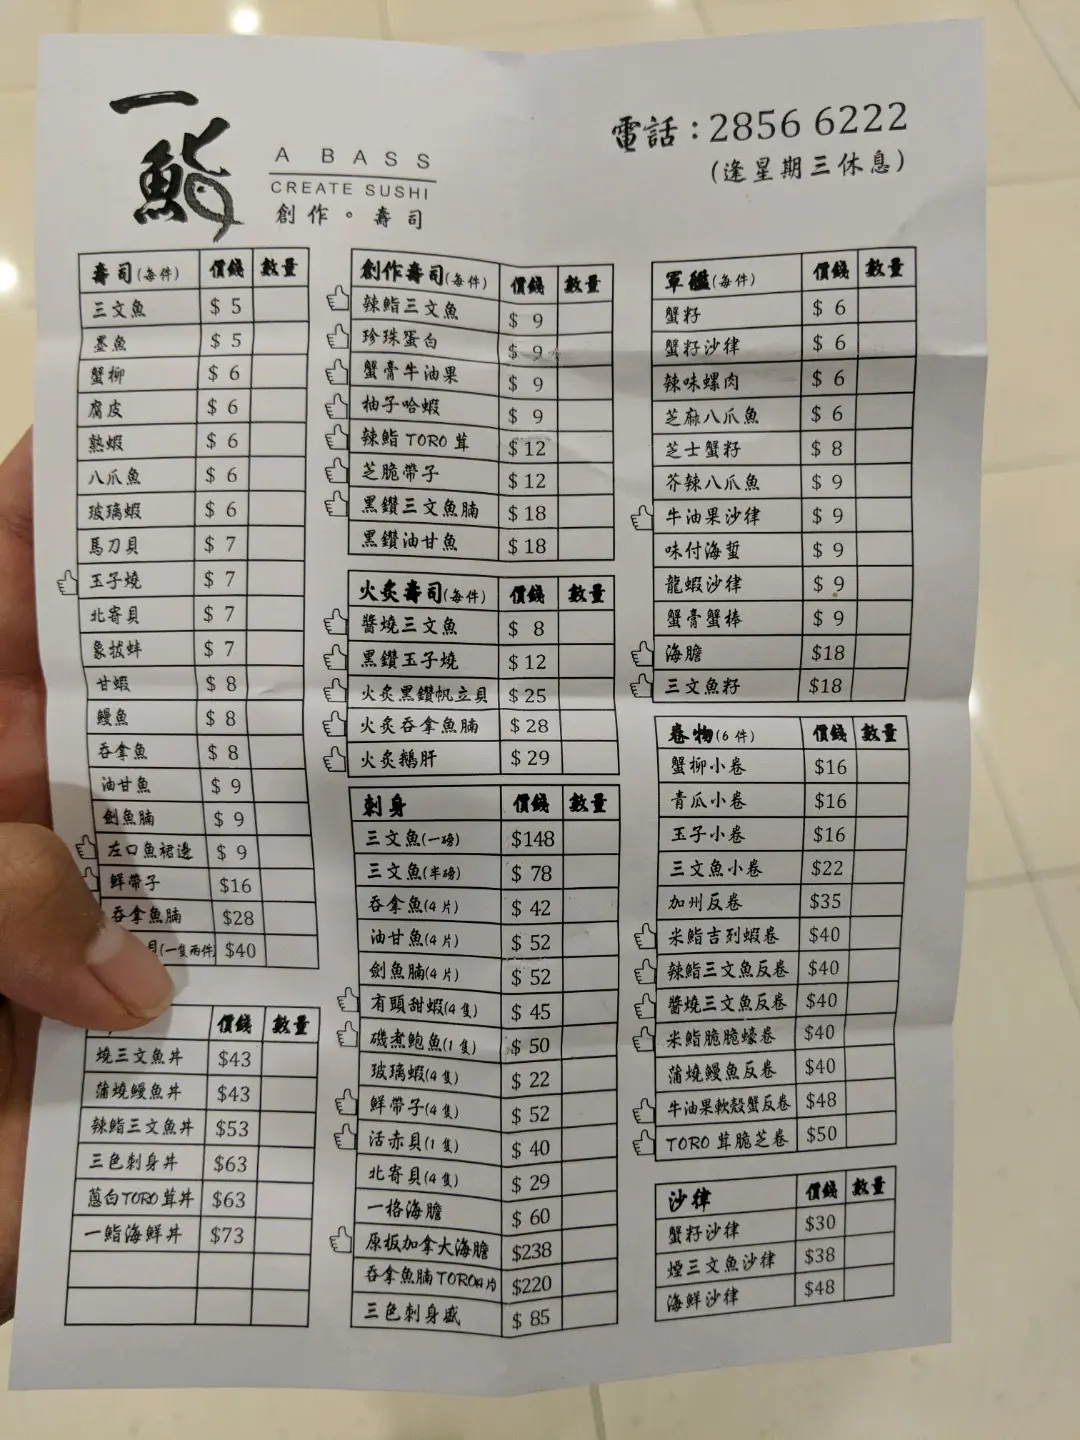 一鮨
A BASS
CREATE SUSHI
創作。壽司
電話：2856 6222
(逢星期三休息)
壽司(每件) 價錢 數量
三文魚 $ 5
墨魚 $ 5
蟹柳 $ 6
腐皮 $ 6
熟蝦 $ 6
八爪魚 $ 6
玻璃蝦 $ 6
馬刀貝 $ 7
玉子燒 $ 7
北寄貝 $ 7
象拔蚌 $ 7
甘蝦 $ 8
鰻魚 $ 8
吞拿魚 $ 8
油甘魚 $ 9
劍魚腩 $ 9
左口魚裙邊 $ 9
鮮帶子 $16
吞拿魚腩 $28
貝(一隻兩件) $40
價錢 數量
燒三文魚丼 $43
蒲燒鰻魚丼 $43
辣鮨三文魚丼 $53
三色刺身丼 $63
蔥白TORO茸丼 $63
一鮨海鮮丼 $73
創作壽司(每件) 價錢 數量
辣鮨三文魚 $ 9
珍珠蛋白 $ 9
蟹膏牛油果 $ 9
柚子哈蝦 $ 9
辣鮨 TORO 茸 $ 12
芝脆帶子 $ 12
黑鑽三文魚腩 $ 18
黑鑽油甘魚 $ 18
火炙壽司(每件) 價錢 數量
醬燒三文魚 $ 8
黑鑽玉子燒 $ 12
火炙黑鑽帆立貝 $ 25
火炙吞拿魚腩 $ 28
火炙鵝肝 $ 29
刺身 價錢 數量
三文魚(一磅) $148
三文魚(半磅) $ 78
吞拿魚(4片) $ 42
油甘魚(4片) $ 52
劍魚腩(4片) $ 52
有頭甜蝦(4隻) $ 45
磯煮鮑魚(1隻) $ 50
玻璃蝦(4隻) $ 22
鮮帶子(4隻) $ 52
活赤貝(1隻) $ 40
北寄貝(4隻) $ 29
一格海膽 $ 60
原板加拿大海膽 $238
吞拿魚腩TORO(4片) $220
三色刺身盛 $ 85
軍艦(每件) 價錢 數量
蟹籽 $ 6
蟹籽沙律 $ 6
辣味螺肉 $ 6
芝麻八爪魚 $ 6
芝士蟹籽 $ 8
芥辣八爪魚 $ 9
牛油果沙律 $ 9
味付海蜇 $ 9
龍蝦沙律 $ 9
蟹膏蟹棒 $ 9
海膽 $18
三文魚籽 $18
卷物(6件) 價錢 數量
蟹柳小卷 $16
青瓜小卷 $16
玉子小卷 $16
三文魚小卷 $22
加州反卷 $35
米鮨吉列蝦卷 $40
辣鮨三文魚反卷 $40
醬燒三文魚反卷 $40
米鮨脆脆蠔卷 $40
蒲燒鰻魚反卷 $40
牛油果軟殼蟹反卷 $48
TORO 茸脆芝卷 $50
沙律 價錢 數量
蟹籽沙律 $30
煙三文魚沙律 $38
海鮮沙律 $48